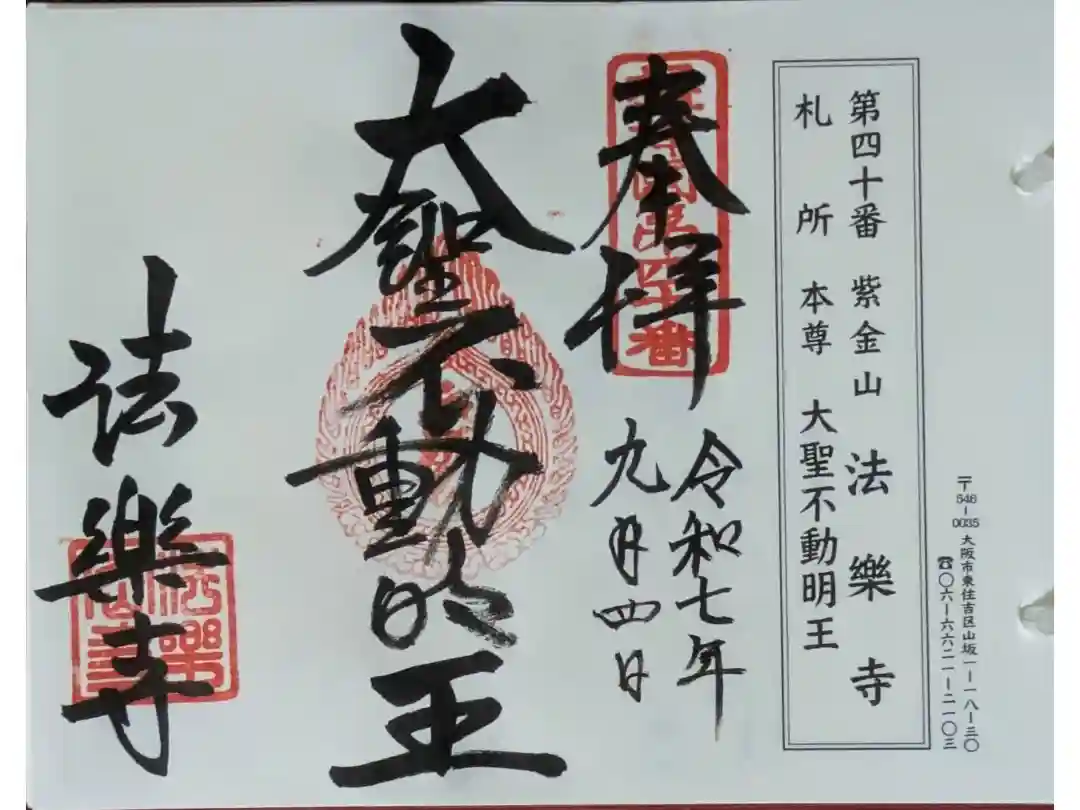 〒546-0035 大阪市東住吉区山坂一-一八-三〇
☎〇六-六六二一-二一〇三
第四十番 紫金山 法樂寺
札所 本尊 大聖不動明王
奉拝
令和七年
九月四日
大聖不動明王
法樂寺